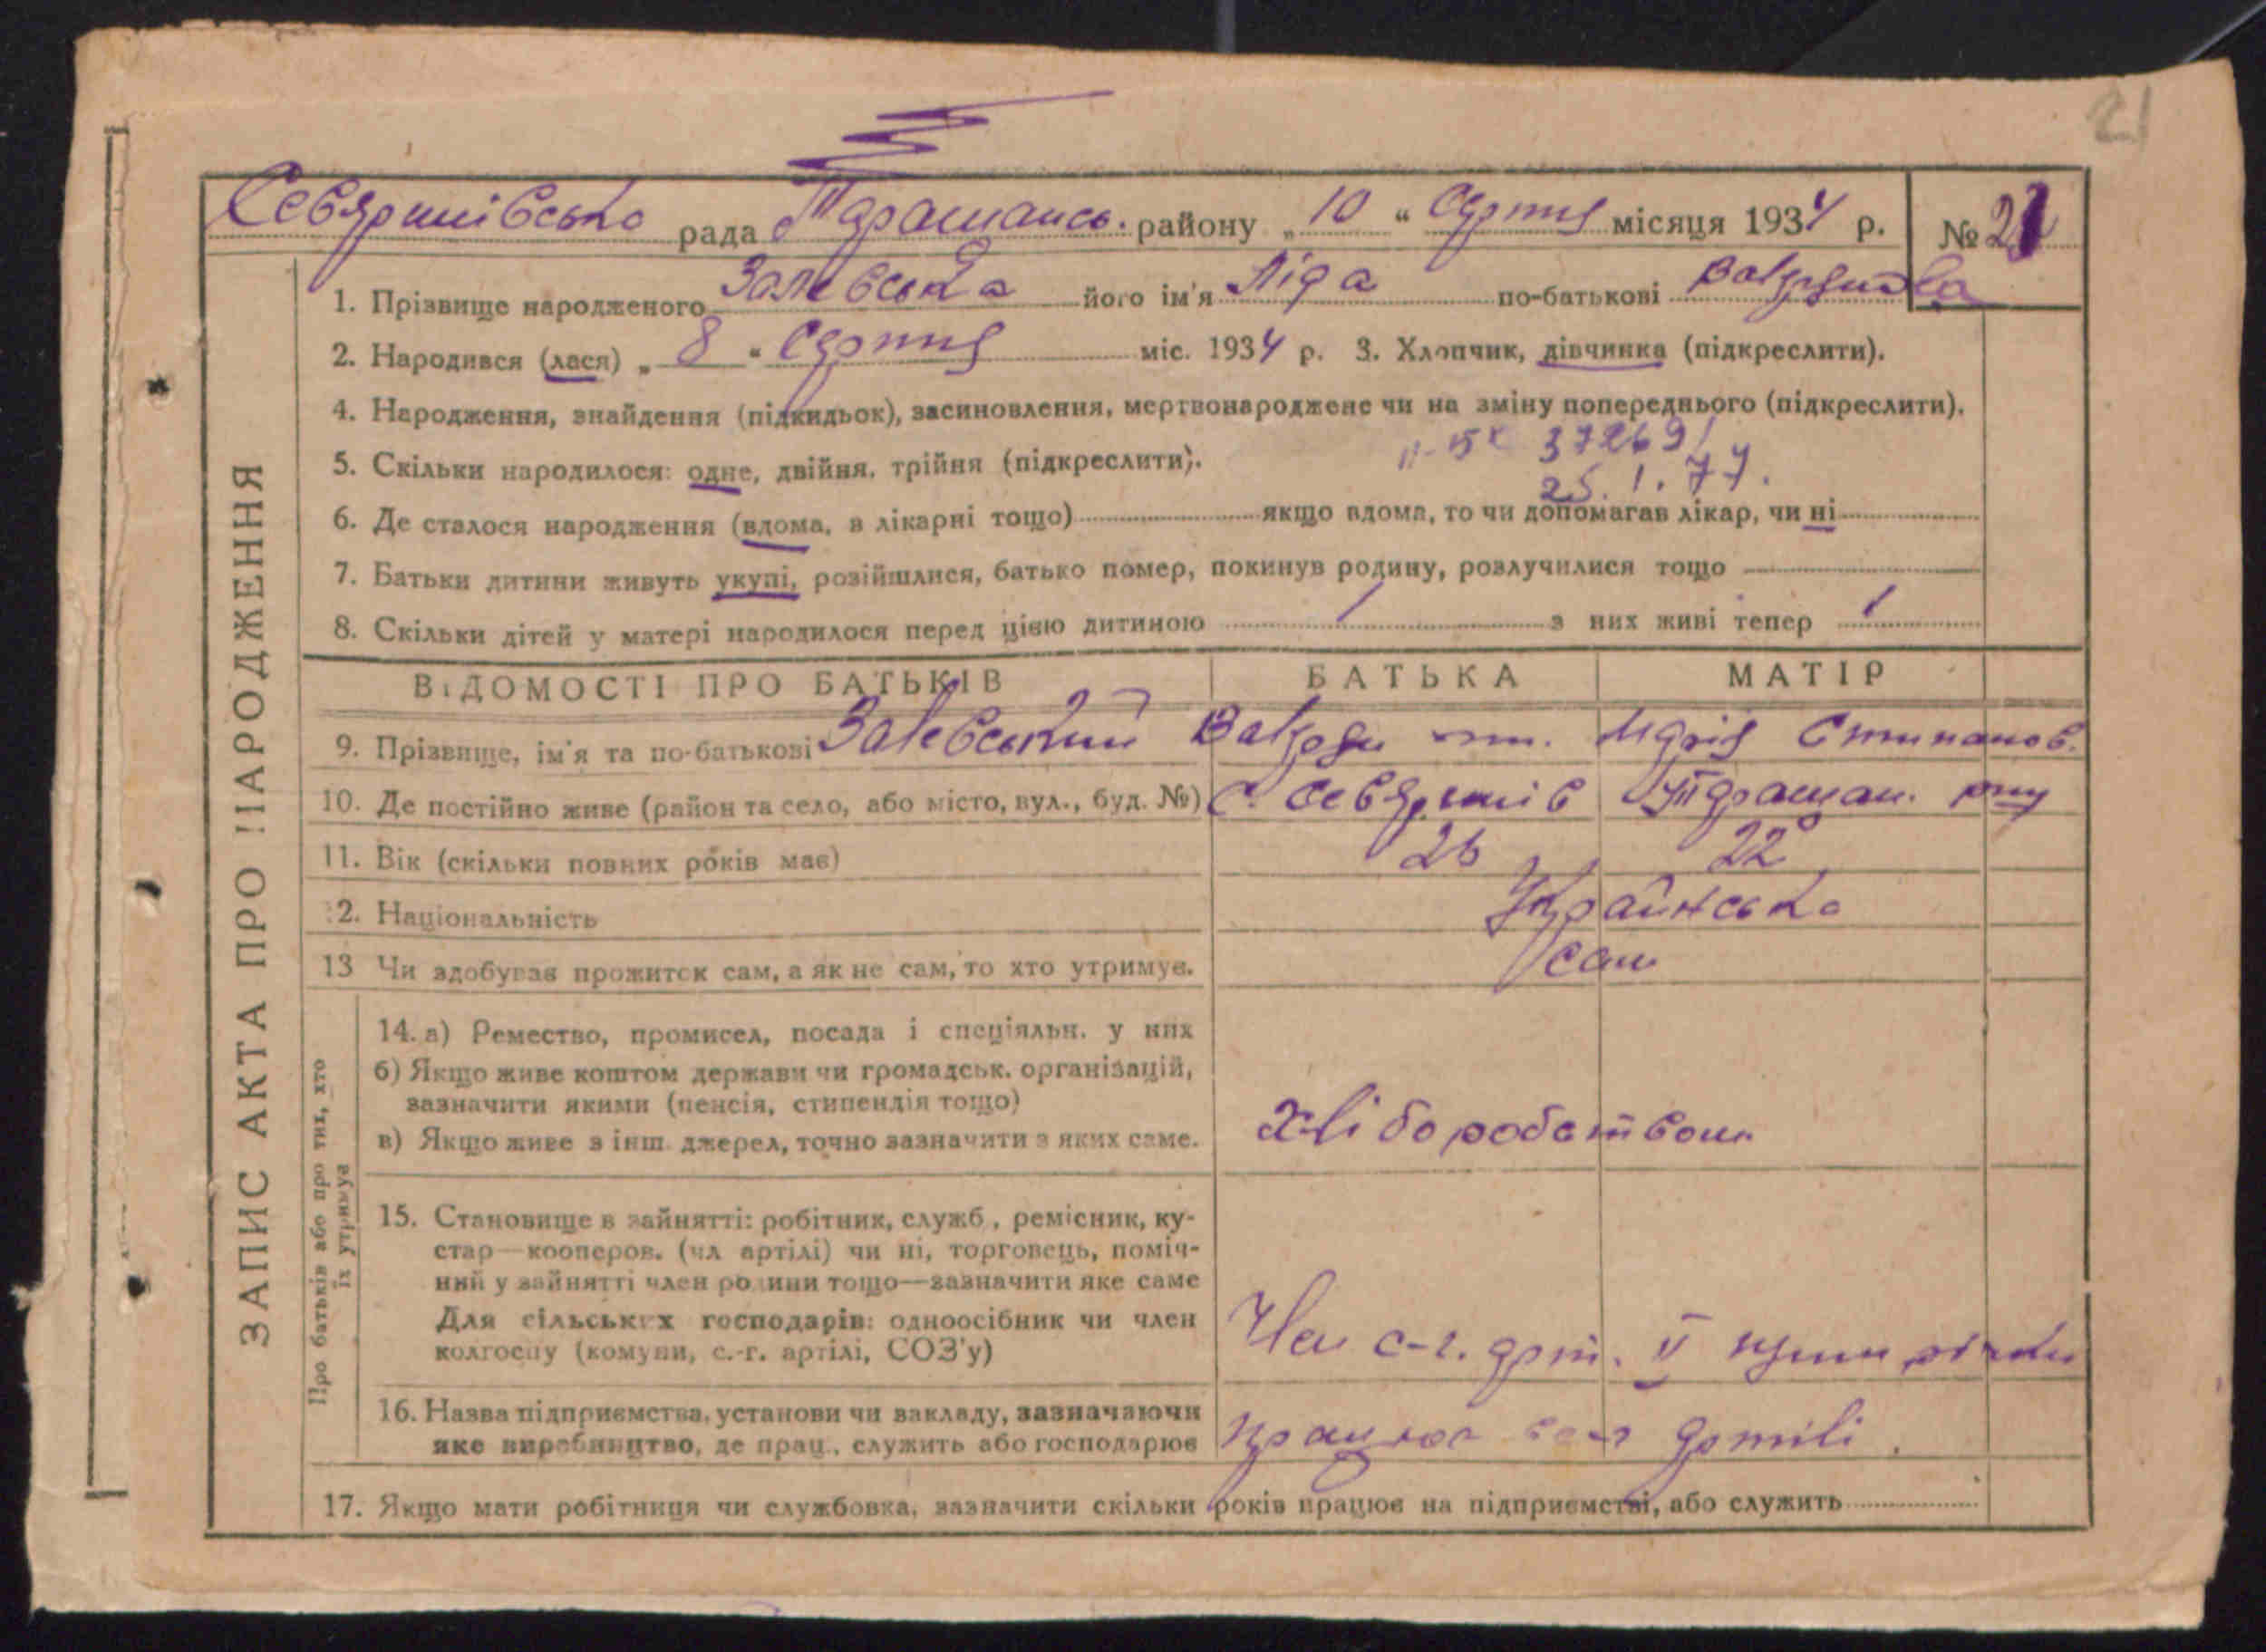 21
Севяринівська рада Тарашансь. району „10“ Серпня місяця 1934 р. № 21
1. Прізвище народженого Залевська його ім'я Ліда по-батькові
2. Народився (лася) „8“ Серпня міс. 1934 р. 3. Хлопчик, дівчинка (підкреслити).
4. Народження, знайдення (підкидьок), засиновлення, мертвонароджене чи на зміну попереднього (підкреслити).
37269
5. Скільки народилося: одне, двійня, трійня (підкреслити).
25.1.77.
6. Де сталося народження (вдома, в лікарні тощо) якщо вдома, то чи допомагав лікар, чи ні
7. Батьки дитини живуть укупі, розійшлися, батько помер, покинув родину, розлучилися тощо
8. Скільки дітей у матері народилося перед цією дитиною 1 з них живі тепер 1
ЗАПИС АКТА ПРО НАРОДЖЕННЯ
ВІДОМОСТІ ПРО БАТЬКІВ БАТЬКА МАТІР
9. Прізвище, ім'я та по-батькові Залевський
10. Де постійно живе (район та село, або місто, вул., буд. №) с. Севяринів Тарашан. рну
11. Вік (скільки повних років має) 26 22
12. Національність Українська
13 Чи здобував прожиток сам, а як не сам, то хто утримує. сам
Про батьків або про тих, хто
їх утримує
14. а) Ремество, промисел, посада і спеціяльн. у них
б) Якщо живе коштом держави чи громадськ. організацій,
зазначити якими (пенсія, стипендія тощо)
в) Якщо живе з інш. джерел, точно зазначити з яких саме.
хліборобством
15. Становище в зайнятті: робітник, служб., ремісник, ку-
стар—кооперов. (чл артілі) чи ні, торговець, поміч-
ний у зайнятті член родини тощо—зазначити яке саме
Для сільських господарів: одноосібник чи член
колгоспу (комуни, с.-г. артілі, СОЗ'у)
Член с-г. арт.
16. Назва підприємства, установи чи закладу, зазначаючи
яке виробництво, де прац., служить або господарює
працює артілі.
17. Якщо мати робітниця чи службовка, зазначити скільки років працює на підприємстві, або служить